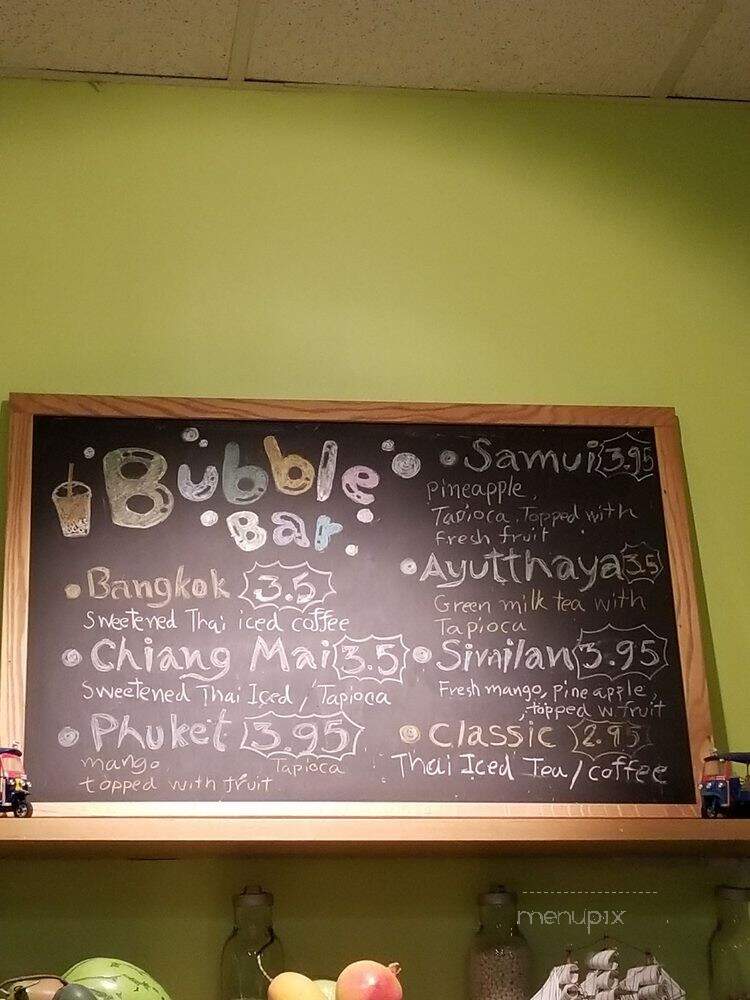 Bubble
Bar
Bangkok 3.5
Sweetened Thai iced coffee
Chiang Mai 3.5
Sweetened Thai Iced / Tapioca
Phuket 3.95
mango Tapioca
topped with fruit
Samui 3.95
Pineapple,
Tapioca, Topped with
Fresh fruit
Ayutthaya 3.5
Green milk tea with
Tapioca
Similan 3.95
Fresh mango, pine apple,
,topped w fruit
Classic 2.95
Thai Iced Tea / coffee
menupix